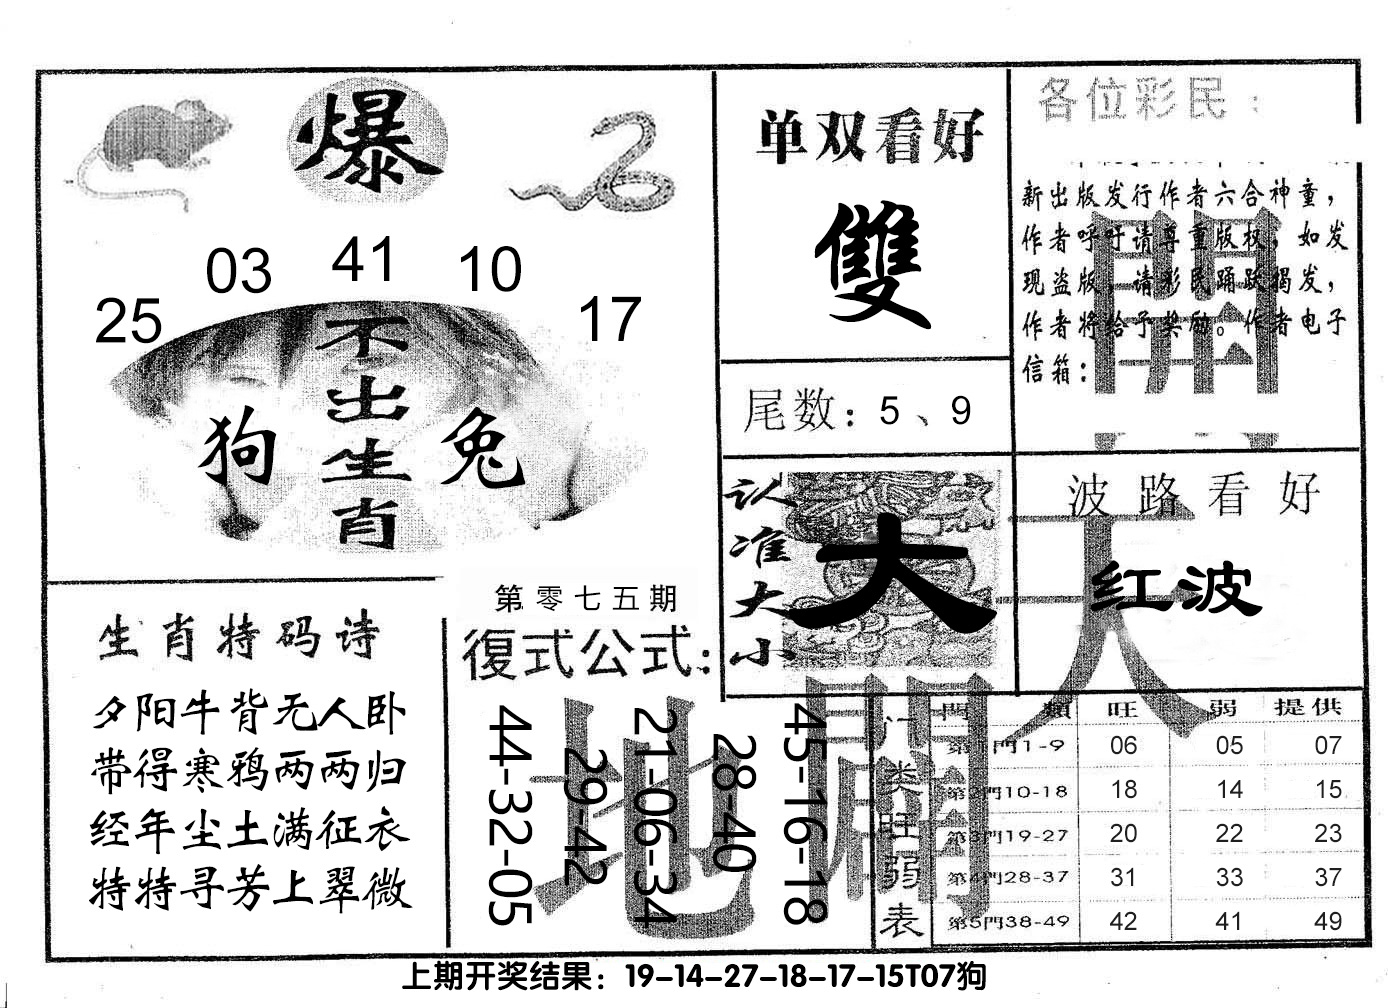 爆
03 41 10
25 17
不出生肖
狗 兔
单双看好
雙
尾数：5、9
各位彩民：
新出版发行作者六合神童，
作者呼吁请尊重版权，如发
现盗版，请彩民踊跃揭发，
作者将给予奖励。作者电子
信箱：
認准大小
大
波路看好
红波
開天闢地
生肖特码诗
夕阳牛背无人卧
带得寒鸦两两归
经年尘土满征衣
特特寻芳上翠微
第零七五期
復式公式：
44-32-05
29-42
21-06-34
28-40
45-16-18
门类旺弱表
門類 旺 弱 提供
第1門1-9 06 05 07
第2門10-18 18 14 15
第3門19-27 20 22 23
第4門28-37 31 33 37
第5門38-49 42 41 49
上期开奖结果：19-14-27-18-17-15T07狗